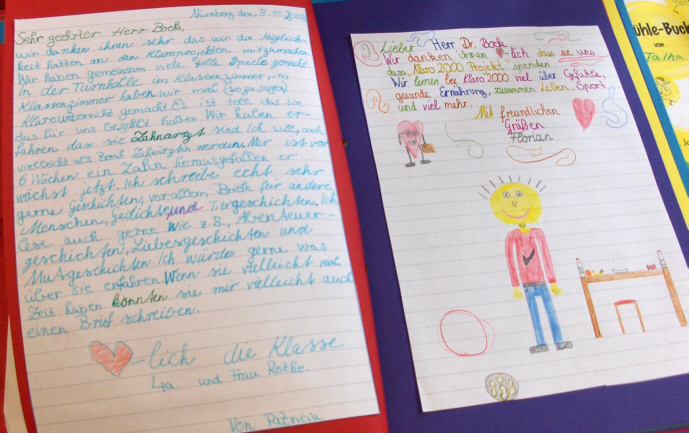 Nürnberg den, 3.
Sehr geehrter Herr Bock,
wir danken ihnen sehr das wir die möglich-
keit hatten an den Klaroprojekten mitzumachen
Wir haben gemeinsam viele tolle Spiele gemacht.
In der Turnhalle im Klassenzimmer, im
Klassenzimmer haben wir mal (sozusagen)
Klarounterricht gemacht. Es ist tolle das sie
das für uns bezahlt haben. Wir haben er-
fahren das sie Zahnarzt sind. Ich will auch
vielleicht als Beruf Zahnärztin werden. Mir ist vor
6 Wochen ein Zahn herausgefallen er
wächst jetzt. Ich schreibe echt sehr
gerne Geschichten, vor allem Briefe für andere
Menschen, Gedichte und Tiergeschichten. Ich
lese auch gerne wie z.B., Abenteuer-
geschichten, Liebesgeschichten und
Mutgeschichten. Ich würde gerne was
über sie erfahren. Wenn sie vielleicht mal
Zeit haben könnten sie mir vielleicht auch
einen Brief schreiben.
-lich die Klasse
4a. und Frau Rothe.
Von Patricia
Lieber Herr Dr. Bock
Wir danken ihnen -lich dass sie uns
dass „Klaro 2000 Projekt" spenden
Wir lernen bei Klaro 2000 viel über Gefühle,
gesunde Ernährung, zusammen Leben, Sport
und viel mehr.
Mit freundlichen
Grüßen
Florian
ühle-Buch
von